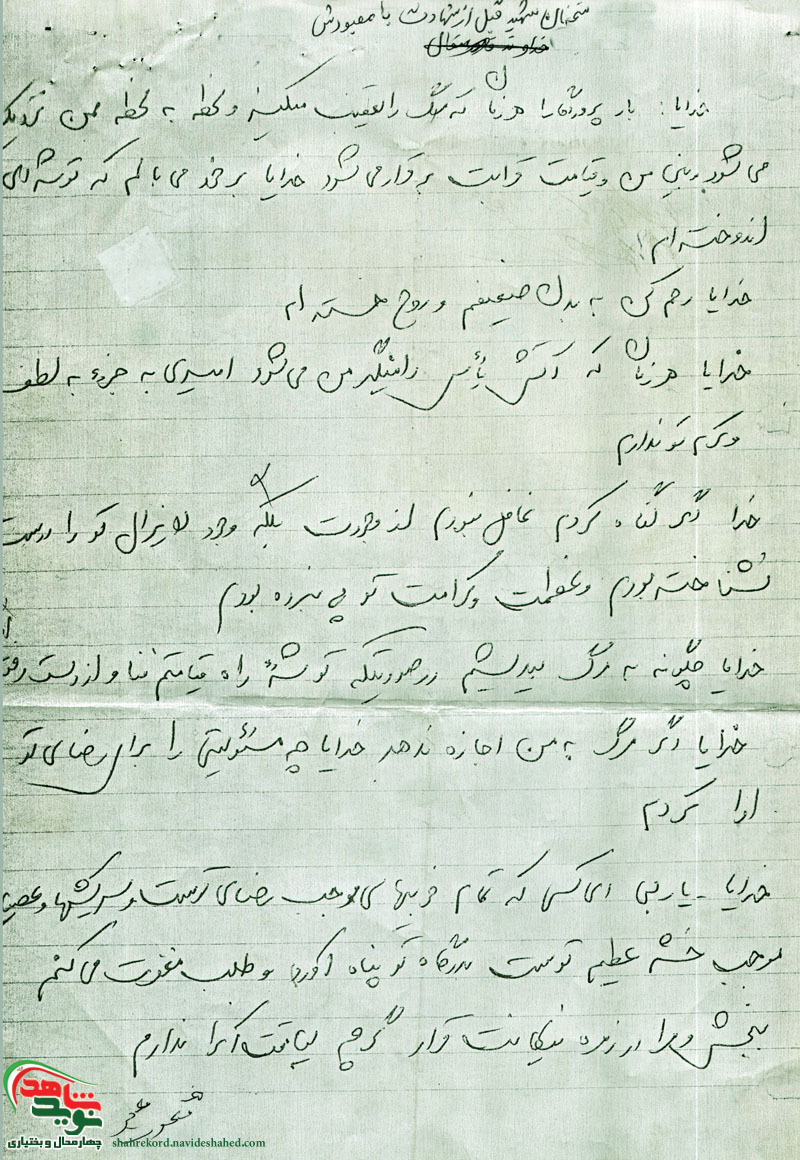 سخنان شهید قبل از شهادت با معبودش
خدایا: بار پروردگارا هر زمان که مرگ را تعقیب میکنم و لحظه به لحظه بمن نزدیک
می شود بین من و قیامت قرابت برقرار می شود خدایا بر خود می بالم که توشه ای
اندوخته ام!
خدایا رحم کن به بدن ضعیفم و روح خسته ام
خدایا هر زمان که آتش یأس دامنگیر من می شود امیدی به جزء به لطف
و کرم تو ندارم
خدا اگر گناه کردم غافل نبودم از وجودت بلکه وجود لایزال تو را درست
نشناخته بودم و عظمت و کرامت تو پی نبرده بودم
خدایا چگونه به مرگ بیندیشم در صورتیکه توشهٔ راه قیامتم فنا و از دست رفته
خدایا اگر مرگ به من اجازه ندهد خدایا چه مسئولیتی را برای رضای تو
ادا کردم
خدایا - یا ربی ای کسی که تمام خوبیها موجب رضای توست و سرکشیها و عصیان
موجب خشم عظیم توست بدرگاه تو پناه آورده و طلب مغفرت می کنم
ببخش و مرا در زمره نیکانت قرار گرچه لیاقت آنرا ندارم
نوید شاهد
چهارمحال و بختیاری
shahrekord.navideshahed.com